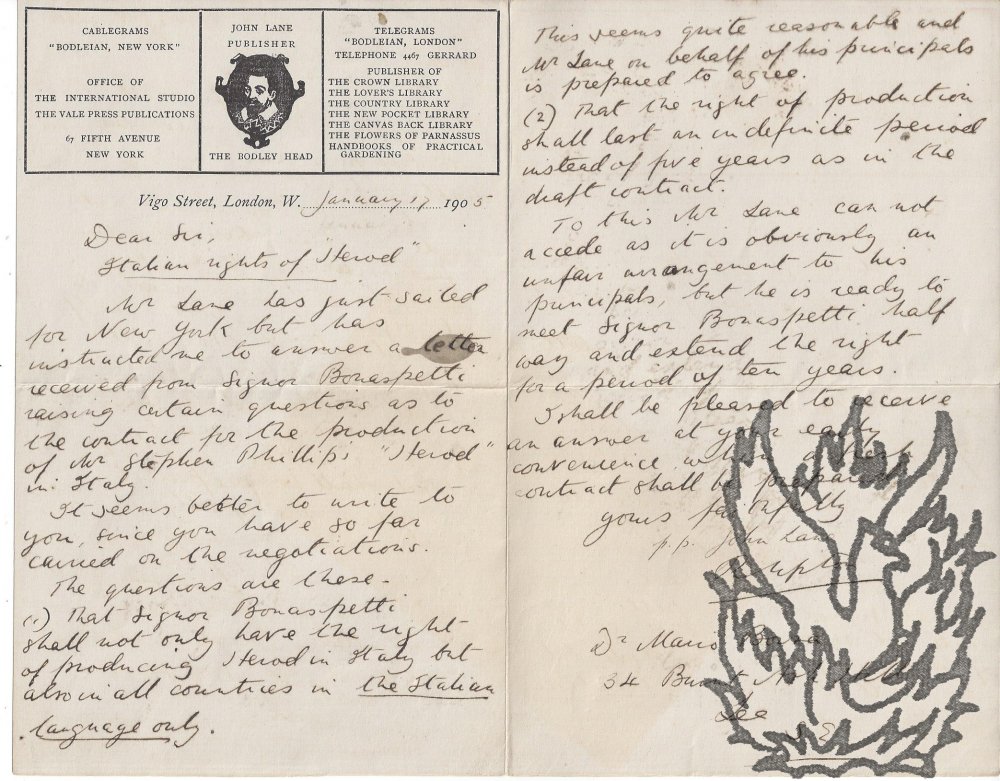 CABLEGRAMS
"BODLEIAN, NEW YORK"
OFFICE OF
THE INTERNATIONAL STUDIO
THE VALE PRESS PUBLICATIONS
67 FIFTH AVENUE
NEW YORK
JOHN LANE
PUBLISHER
THE BODLEY HEAD
TELEGRAMS
"BODLEIAN, LONDON"
TELEPHONE 4467 GERRARD
PUBLISHER OF
THE CROWN LIBRARY
THE LOVER'S LIBRARY
THE COUNTRY LIBRARY
THE NEW POCKET LIBRARY
THE CANVAS BACK LIBRARY
THE FLOWERS OF PARNASSUS
HANDBOOKS OF PRACTICAL
GARDENING
Vigo Street, London, W. January 17 1905
Dear Sir,
Italian rights of "Herod"
Mr Lane has just sailed
for New York but has
instructed me to answer a letter
received from Signor Bonaspetti
raising certain questions as to
the contract for the production
of Mr Stephen Phillips' "Herod"
in Italy.
It seems better to write to
you, since you have so far
carried on the negotiations.
The questions are these-
(1) That Signor Bonaspetti
shall not only have the right
of producing Herod in Italy but
also in all countries in the Italian
language only.
This seems quite reasonable and
Mr Lane on behalf of his principals
is prepared to agree.
(2) That the right of production
shall last an indefinite period
instead of five years as in the
draft contract.
To this Mr Lane can not
accede as it is obviously an
unfair arrangement to his
principals, but he is ready to
meet Signor Bonaspetti half
way and extend the right
for a period of ten years.
I shall be pleased to receive
an answer at your early
convenience when a fresh
contract shall be prepared
yours faithfully
p.p. John Lane
Dr Mario
34
Lee
S.E.